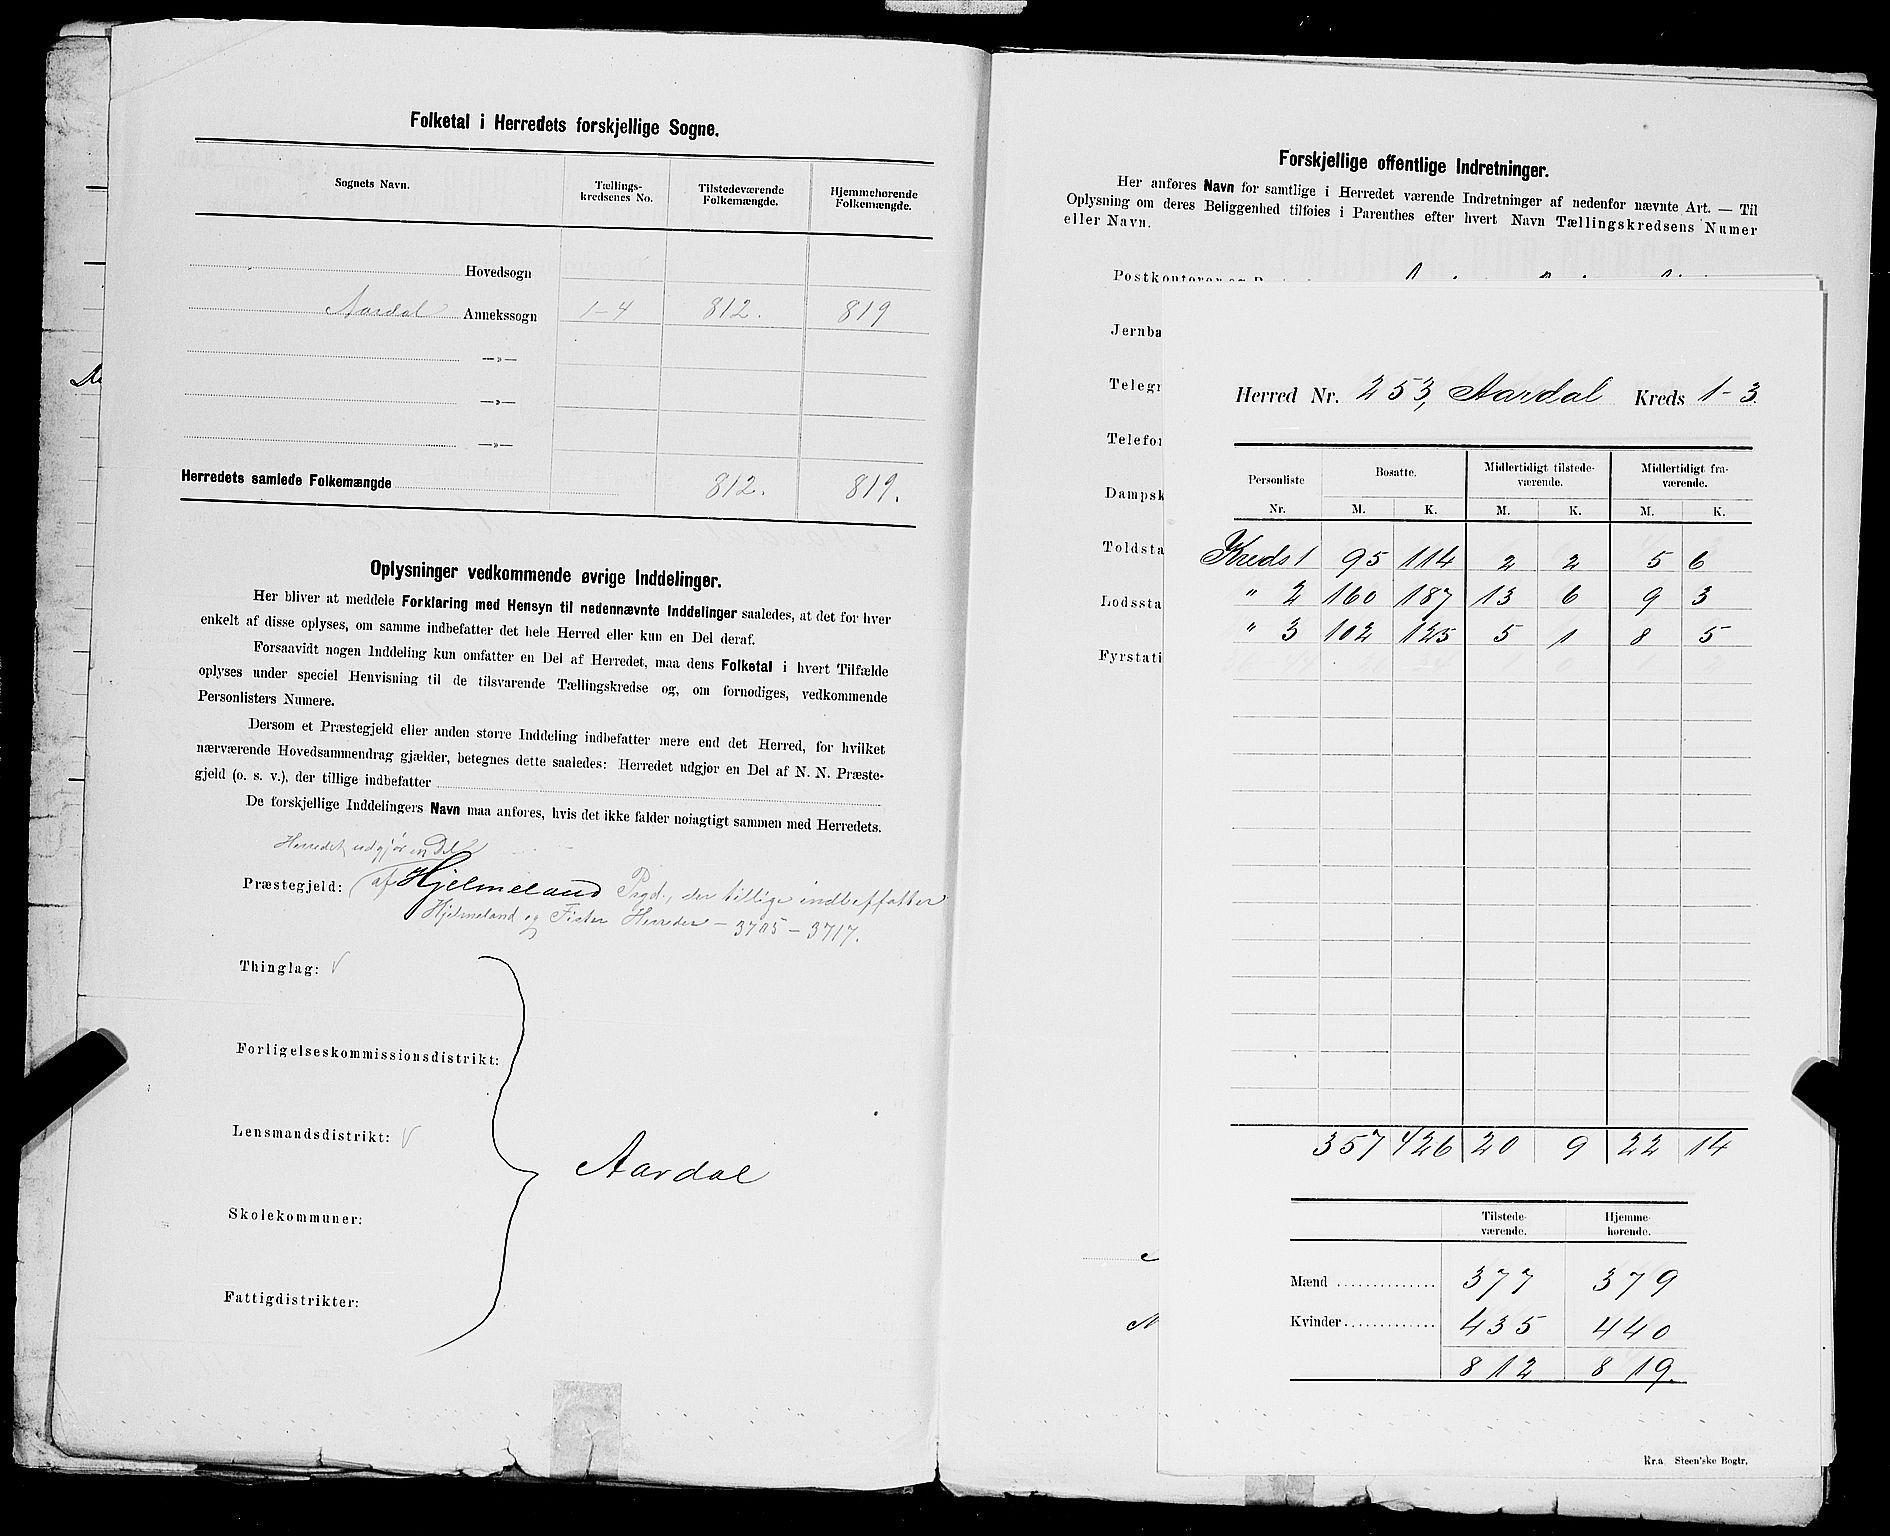 Folketal i Herredets forskjellige Sogne.
Sognets Navn. Tællings-kredsenes No. Tilstedeværende Folkemængde. Hjemmehørende Folkemængde.
Hovedsogn
Aardal Annekssogn 1-4 812. 819
—»—
—»—
—»—
Herredets samlede Folkemængde 812. 819.
Oplysninger vedkommende øvrige Inddelinger.
Her bliver at meddele Forklaring med Hensyn til nedennævnte Inddelinger saaledes, at det for hver
enkelt af disse oplyses, om samme indbefatter det hele Herred eller kun en Del deraf.
Forsaavidt nogen Inddeling kun omfatter en Del af Herredet, maa dens Folketal i hvert Tilfælde
oplyses under speciel Henvisning til de tilsvarende Tællingskredse og, om fornødiges, vedkommende
Personlisters Numere.
Dersom et Præstegjeld eller anden større Inddeling indbefatter mere end det Herred, for hvilket
nærværende Hovedsammendrag gjælder, betegnes dette saaledes: Herredet udgjør en Del af N. N. Præste-
gjeld (o. s. v.), der tillige indbefatter
De forskjellige Inddelingers Navn maa anføres, hvis det ikke falder nøiagtigt sammen med Herredets.
Herredet udgjør en Del
Præstegjeld: af Hjelmeland Prgd., der tillige indbefatter
Hjelmeland og Fister Herreder – 3705 – 3717.
Thinglag:
Forligelseskommissionsdistrikt:
Lensmandsdistrikt:
Aardal
Skolekommuner:
Fattigdistrikter:
Forskjellige offentlige Indretninger.
Her anføres Navn for samtlige i Herredet værende Indretninger af nedenfor nævnte Art. — Til
Oplysning om deres Beliggenhed tilføies i Parenthes efter hvert Navn Tællingskredsens Numer
eller Navn.
Postkontorer og
Jernba
Telegr
Telefor
Dampsk
Toldsta
Lodssta
Fyrstati
Herred Nr. 253, Aardal Kreds 1-3
Personliste Nr. Bosatte. Midlertidigt tilstede-værende. Midlertidigt fra-værende.
M. K. M. K. M. K.
Kreds 1 95 114 2 2 5 6
" 2 160 187 13 6 9 3
" 3 102 125 5 1 8 5
357 426 20 9 22 14
Tilstede-værende. Hjemme-hørende.
Mænd 377 379
Kvinder 435 440
812 819.
Kr.a. Steen'ske Bogtr.